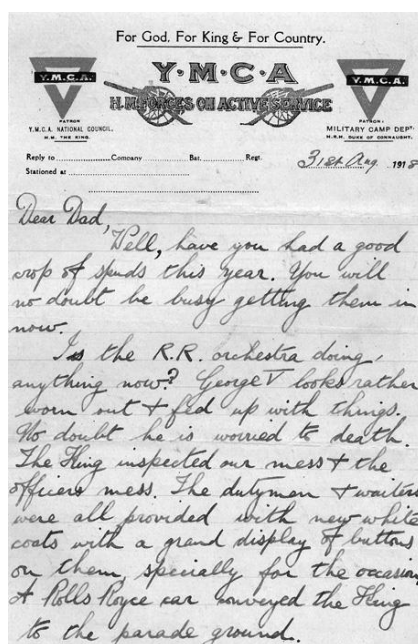 For God, For King & For Country.
Y.M.C.A.
Y·M·C·A
Y.M.C.A.
H.M. FORCES ON ACTIVE SERVICE
PATRON
Y.M.C.A. NATIONAL COUNCIL.
H.M. THE KING.
PATRON
MILITARY CAMP DEPT.
H.R.H. DUKE OF CONNAUGHT.
Reply to Company Bat. Regt. 31st Aug 1918
Stationed at
Dear Dad,
Well, have you had a good
crop of spuds this year. You will
no doubt be busy getting them in
now.
Is the R.R. orchestra doing,
anything now? George V looks rather
worn out & fed up with things.
No doubt he is worried to death.
The King inspected our mess & the
officers mess. The dutymen & waiters
were all provided with new white
coats with a grand display of buttons
on them, specially for the occasion
A Rolls Royce car conveyed the King
to the parade ground.